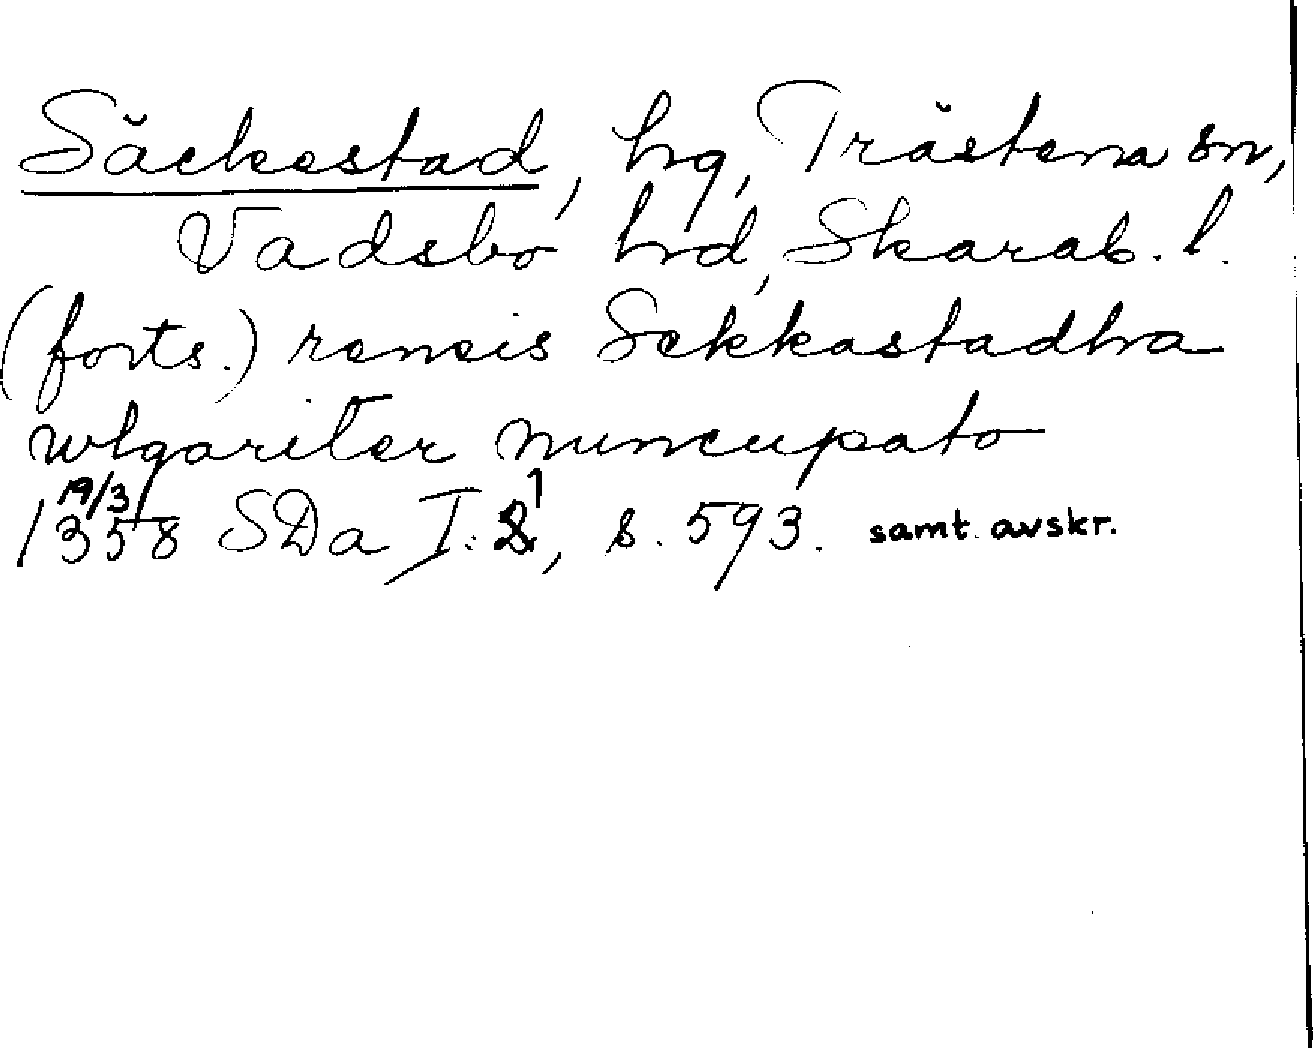 Säckestad, hg, Trästena sn,
Vadsbo hd, Skarab. l.
(forts.) rensis Sekkastadha
wlgariter nuncupato
19/3 1358 SDa I:1, s. 593. samt. avskr.